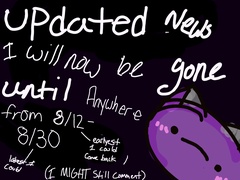 updated News
I will now be gone
until Anywhere
from 8/12-
8/30
earliest
I could
come back
latest I
could
(I MIGHT still comment)